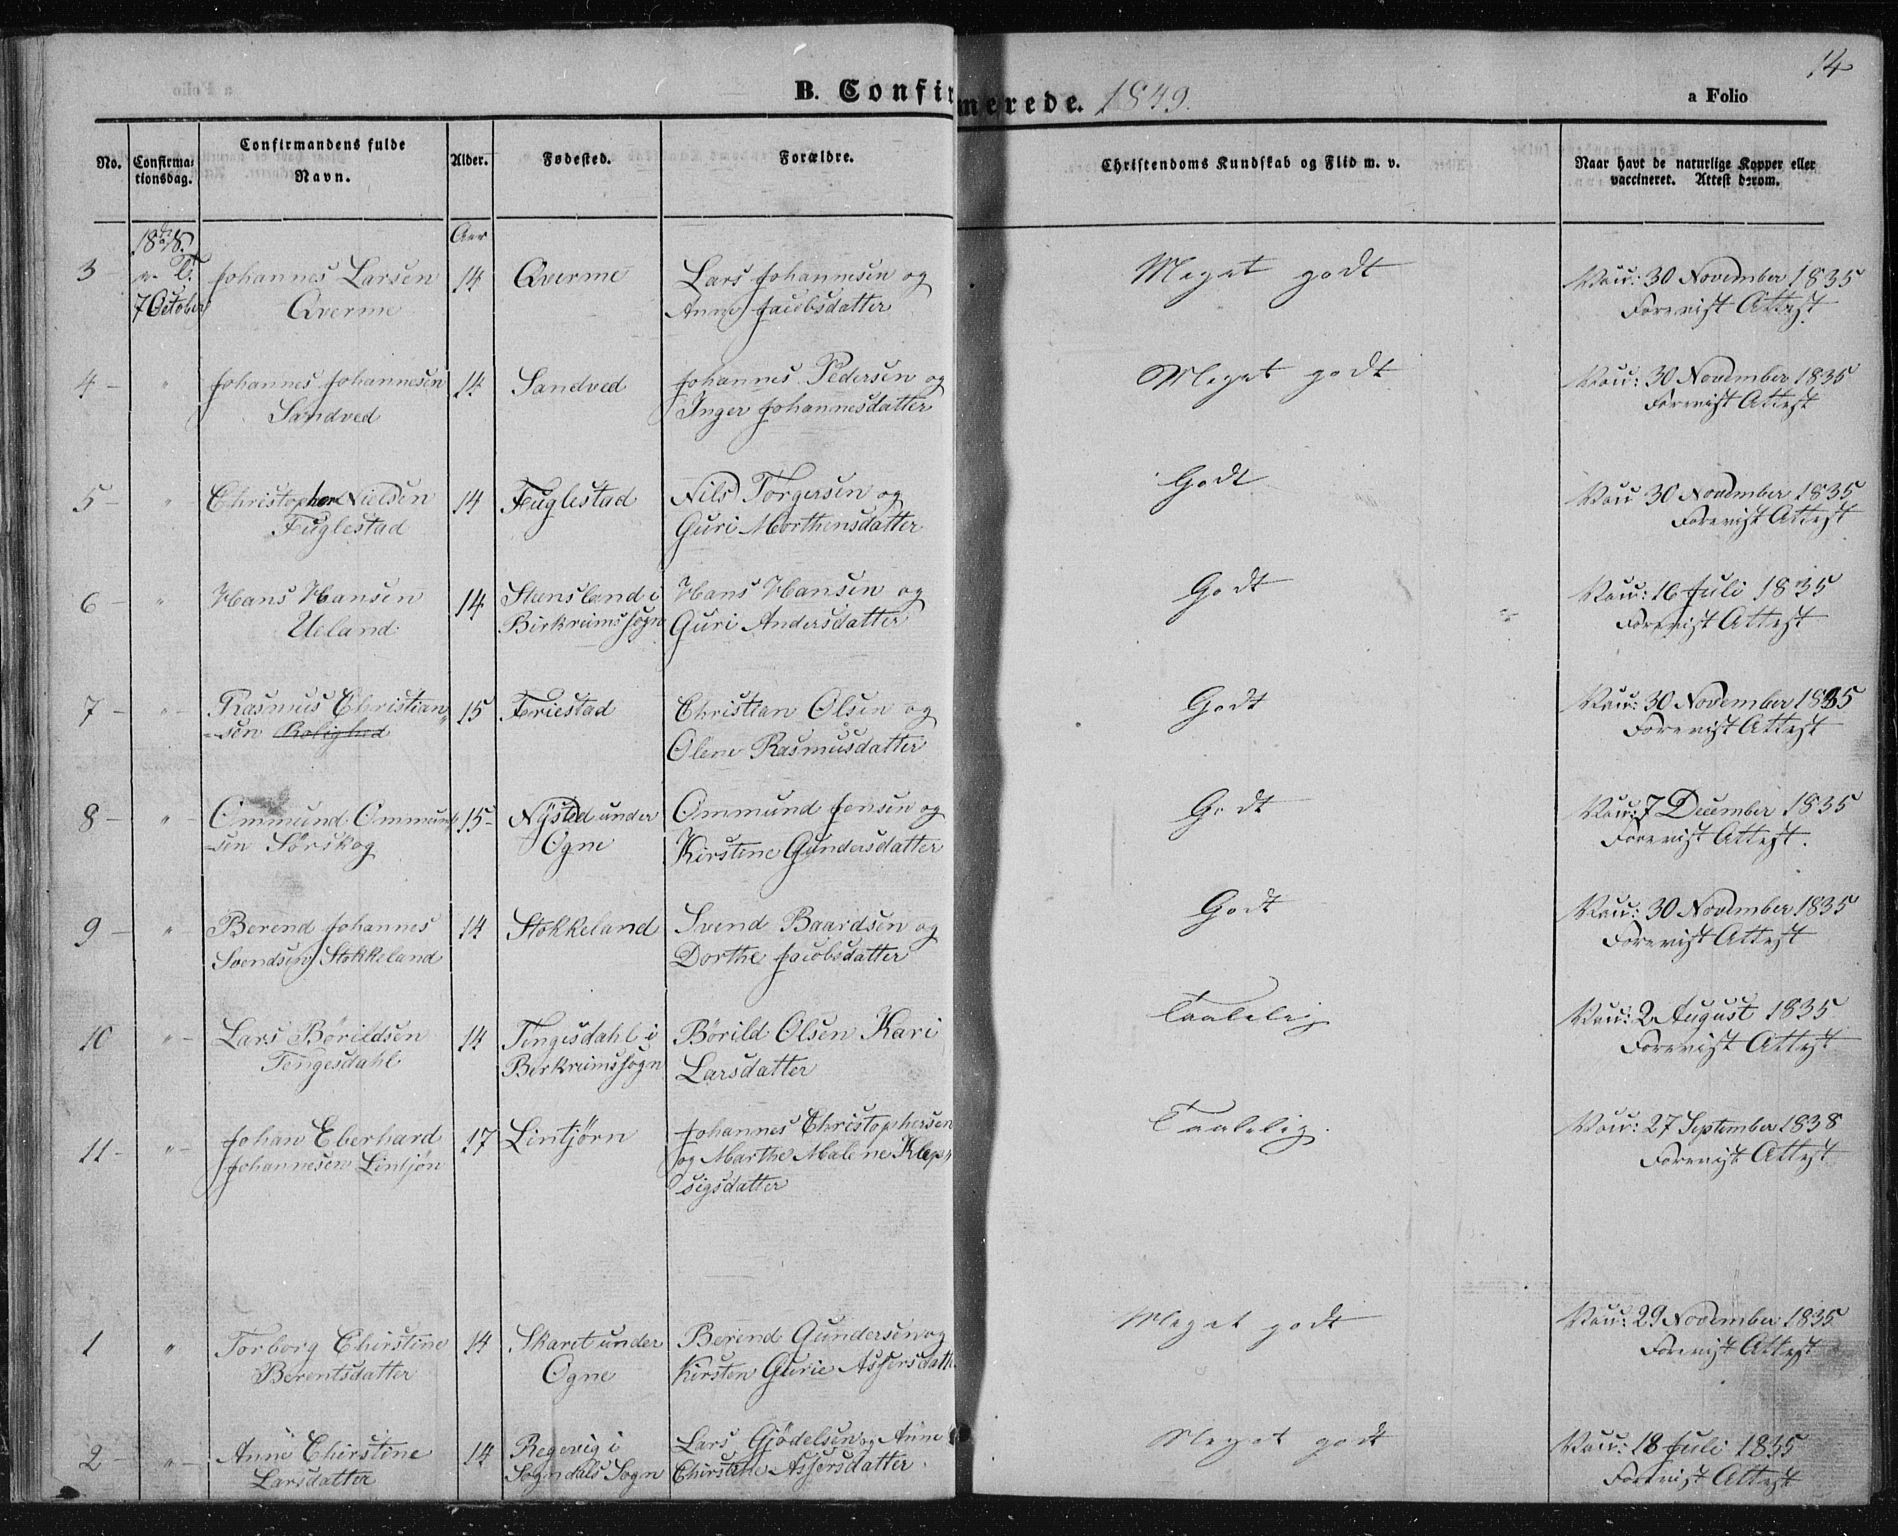 14
B. Confirmerede. 1849.
a Folio
No.
Confirma-
tionsdag.
Confirmandens fulde
Navn.
Alder.
Fødested.
Forældre.
Christendoms Kundskab og Flid m. v.
Naar havt de naturlige Kopper eller
vaccineret. Attest derom.
Aar
3 7 October Johannes Larsen 14 Qverme Lars Johannesen og Meget godt Vacc: 30 November 1835
Qverme Anne Jacobsdatter Forevist Attest.
4 - " Johannes Johannesen 14 Sandved Johannes Pedersen og Meget godt Vacc: 30 November 1835
Sandved Inger Johannesdatter Forevist Attest
5 - " Christopher Nielsen 14 Fuglestad Nils Torgersen og Godt Vacc 30 November 1835
Fuglestad Guri Morthensdatter Forevist Attest
6 - " Hans Hansen 14 Stensland i Hans Hansen og Godt Vacc: 16 Juli 1835
Ueland Birkreims Sogn Guri Andersdatter Forevist Attest
7 - " - Rasmus Christian 15 Friestad Christian Olsen og Godt Vacc: 30 November 1835
-sen Rolighed Olene Rasmusdatter Forevist Attest
8 - " - Ommund Ommund 15 Nÿsted under Ommund Jensen og Godt Vacc: 7 December 1835
-sen Sørskog Ogne Kirstine Gundersdatter Forevist Attest.
9 - " - Berend Johannes 14 Stokkeland Svend Baardsen og Godt Vacc: 30 November 1835
Svendsen Stokkeland Dorthe Jacobsdatter Forevist Attest
10 " - Lars Børildsen 14 Tengesdahl i Børild Olsen Kari Taalelig Vacc: 2 August 1835
Tengesdahl Birkreims Sogn Larsdatter Forevist Attest
11 - " - Johan Eberhard 17 Lintjørn Johannes Christophersen Taalelig. Vacc: 27 September 1838
Johannesen Lintjøn og Marthe Malene Klep" Forevist Attest
sigsdatter
1 " Torborg Christine 14 Skaret under Berend Gundersen og Meget godt Vacc: 29 November 1835
Berentsdatter Ogne Kirsten Gurie Assersdatter Forevist Attest
2 - " - Anne Chirstine 14 Regevig i Lars Gjødelsen og Anne Meget godt Vacc: 18 Juli 1835
Larsdatter Sogndals Sogn Chirstine Assersdatter. Forevist Attest